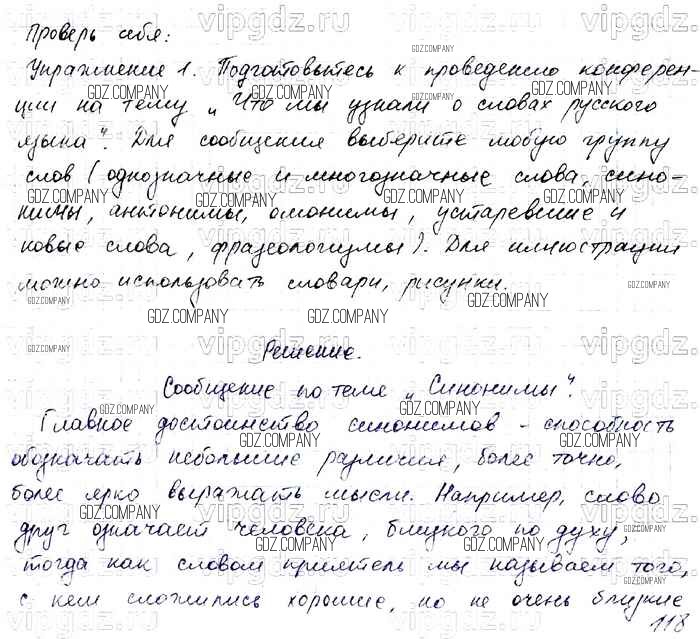 Проверь себя:
Упражнение 1. Подготовьтесь к проведению конферен-
ции на тему „Что мы узнали о словах русского
языка". Для сообщения выберите любую группу
слов (однозначные и многозначные слова, сино-
нимы, антонимы, омонимы, устаревшие и
новые слова, фразеологизмы). Для иллюстрации
можно использовать словари, рисунки.
Решение.
Сообщение по теме „Синонимы".
Главное достоинство синонимов - способность
обозначать небольшие различия, более точно,
более ярко выражать мысли. Например, слово
друг означает человека, близкого по духу,
тогда как словом приятель мы называем того,
с кем сложились хорошие, но не очень близкие
118